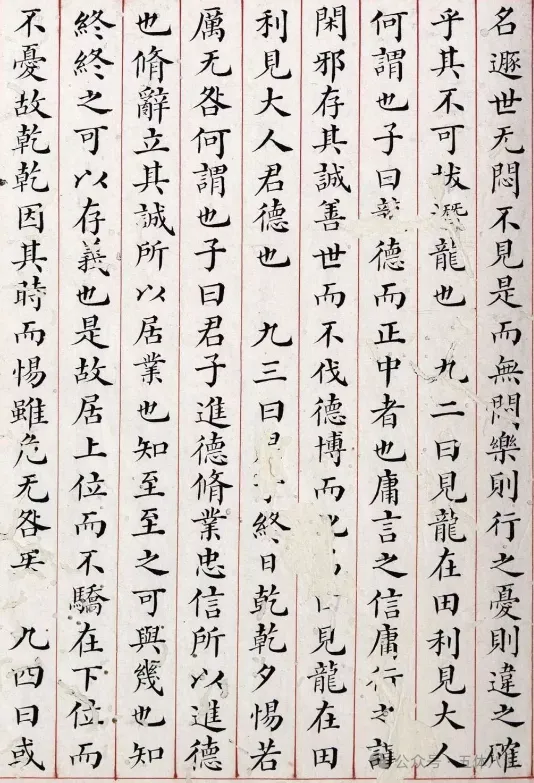 名遯世无悶不見是而無悶樂則行之憂則違之確
乎其不可拔潛龍也 九二曰見龍在田利見大人
何謂也子曰龍德而正中者也庸言之信庸行之謹
閑邪存其誠善世而不伐德博而 見龍在田
利見大人君德也 九三曰 終日乾乾夕惕若
厲无咎何謂也子曰君子進德脩業忠信所以進德
也脩辭立其誠所以居業也知至至之可與幾也知
終終之可以存義也是故居上位而不驕在下位而
不憂故乾乾因其時而惕雖危无咎矣 九四曰或
公众号·五体